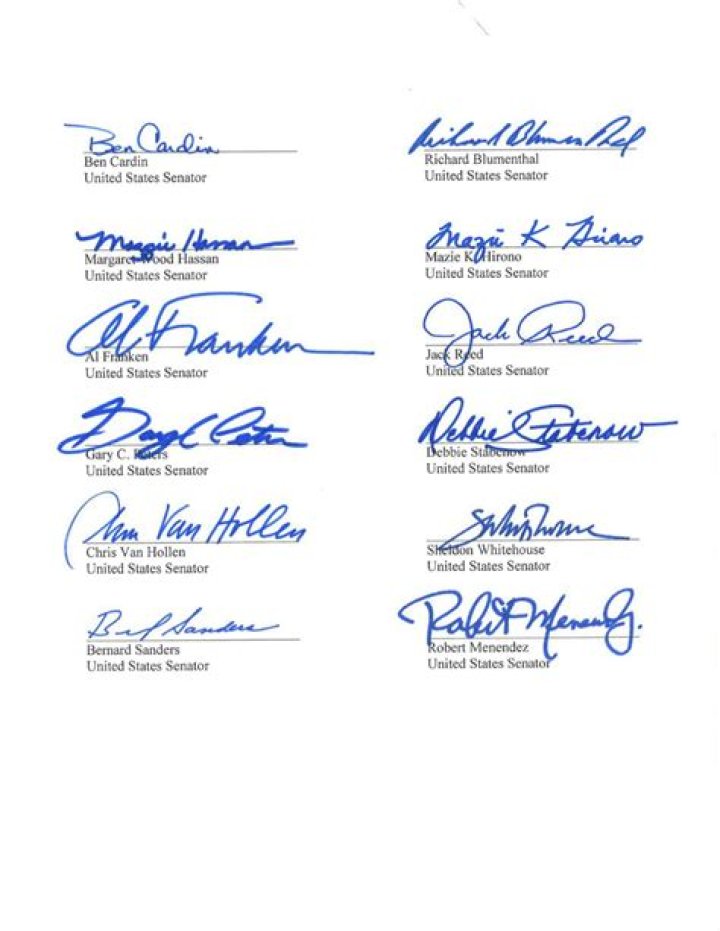 Ben Cardin
Ben Cardin
United States Senator
Richard Blumenthal
Richard Blumenthal
United States Senator
Maggie Hassan
Margaret Wood Hassan
United States Senator
Mazie K Hirono
Mazie K. Hirono
United States Senator
Al Franken
Al Franken
United States Senator
Jack Reed
Jack Reed
United States Senator
Gary C. Peters
United States Senator
Debbie Stabenow
Debbie Stabenow
United States Senator
Chris Van Hollen
Chris Van Hollen
United States Senator
Sheldon Whitehouse
United States Senator
Sanders
Bernard Sanders
United States Senator
Robert Menendez
Robert Menendez
United States Senator